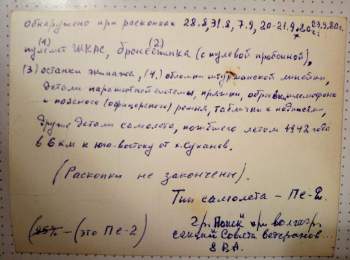 Обнаружено при раскопках 28.8, 31.8, 7.9, 20-21.9, 23.9.80г.
(1) (2)
пулемет ШКАС, бронеспинка (с пулевой пробоиной),
(3) останки экипажа, (4) обломок мины,
детали парашютной системы, пряжки, обрывки шлемофона
и поясного (офицерского) ремня, таблички с надписями,
другие детали самолета, погибшего летом 1942 года
в 6 км к юго-востоку от х. Суханов.
(Раскопки не закончены).
Тип самолета - Пе-2.
(это Пе-2)
гр. Поиск при волгогр.
секции Совета ветеранов